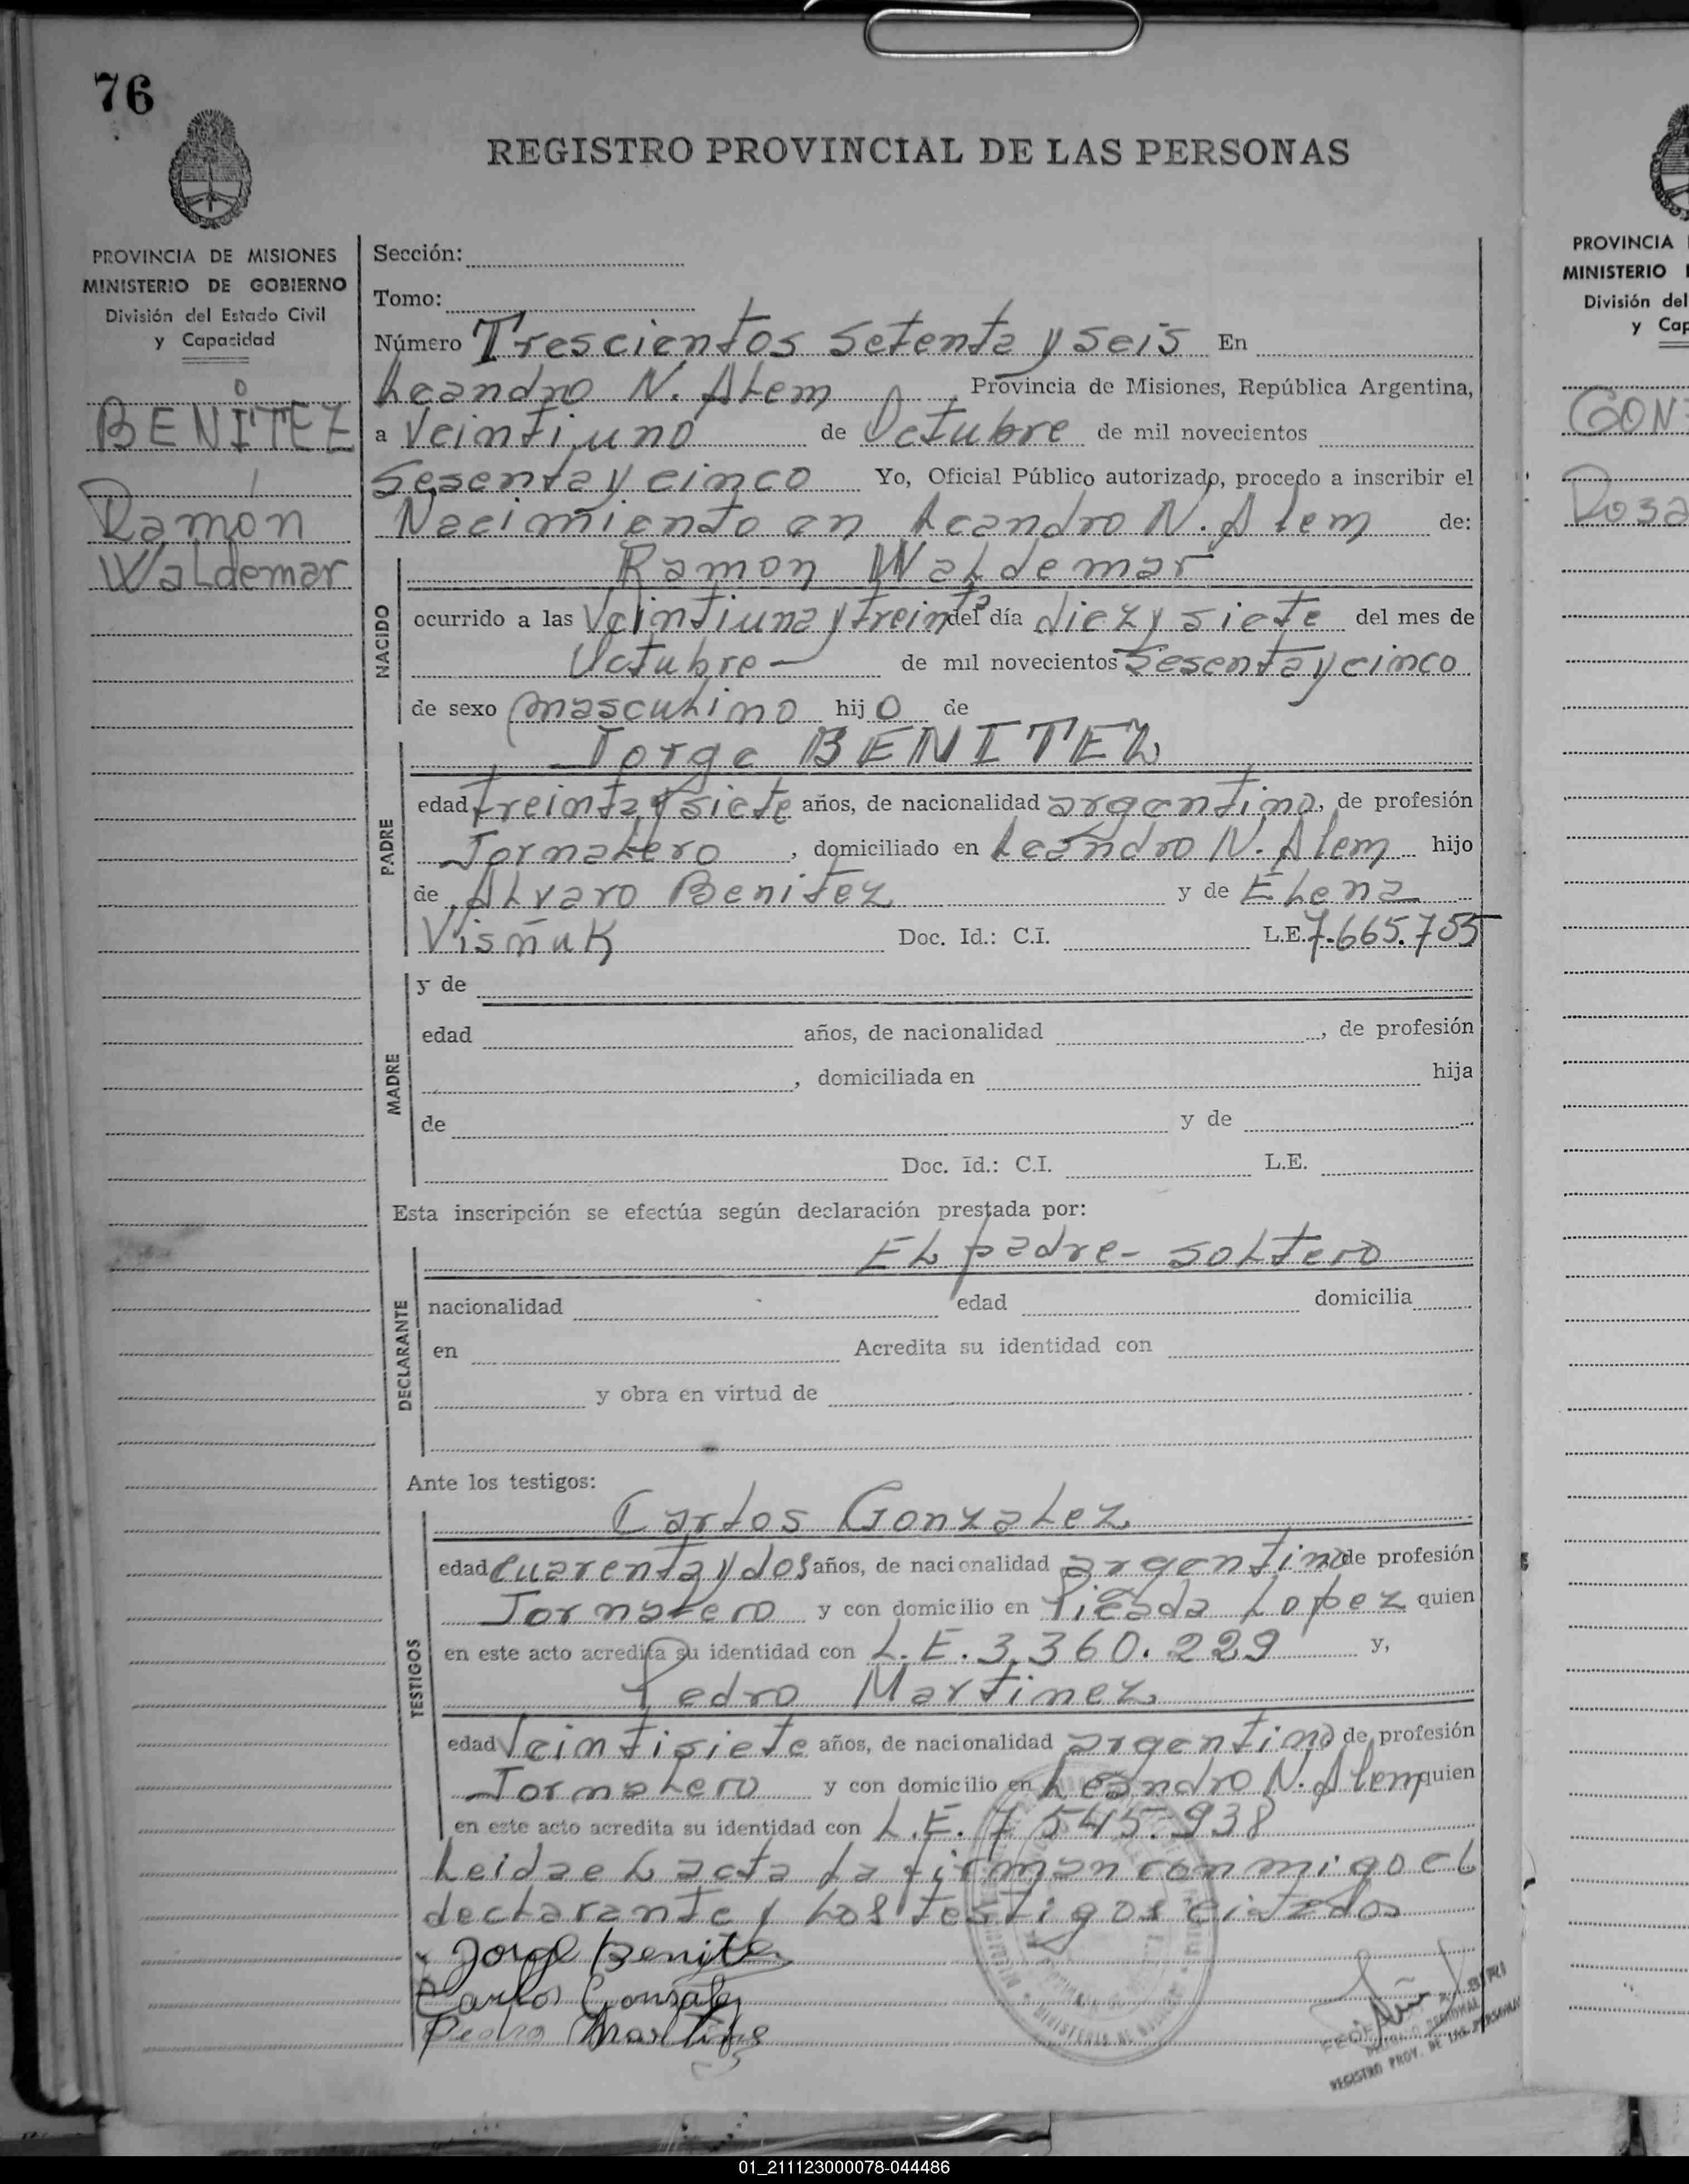 76
REGISTRO PROVINCIAL DE LAS PERSONAS
PROVINCIA DE MISIONES
MINISTERIO DE GOBIERNO
División del Estado Civil
y Capacidad
BENITEZ
Ramón
Waldemar
Sección:
Tomo:
Número Trescientos setenta y seis En
Leandro N. Alem, Provincia de Misiones, República Argentina,
a Veintiuno de Octubre de mil novecientos
Sesenta y cinco Yo, Oficial Público autorizado, procedo a inscribir el
Nacimiento en Leandro N. Alem de:
NACIDO
Ramon Waldemar
ocurrido a las Veintiuna y treinta del día diez y siete del mes de
Octubre — de mil novecientos Sesenta y cinco
de sexo masculino hijo de
PADRE
Jorge BENITEZ
edad treinta y siete años, de nacionalidad argentino, de profesión
Jornalero, domiciliado en Leandro N. Alem hijo
de Alvaro Benitez y de Elena
Visñuk Doc. Id.: C.I. L.E. 7.665.755
MADRE
y de
edad años, de nacionalidad , de profesión
, domiciliada en hija
de y de
Doc. Id.: C.I. L.E.
Esta inscripción se efectúa según declaración prestada por:
DECLARANTE
El padre - soltero
nacionalidad edad domicilia
en Acredita su identidad con
y obra en virtud de
Ante los testigos:
TESTIGOS
Carlos Gonzalez
edad cuarenta y dos años, de nacionalidad argentino de profesión
Jornalero y con domicilio en Picada Lopez quien
en este acto acredita su identidad con L.E. 3.360.229 y,
Pedro Martinez
edad Veintisiete años, de nacionalidad argentino de profesión
Jornalero y con domicilio en Leandro N. Alem quien
en este acto acredita su identidad con L.E. 7.545.938
Leida el acta la firman conmigo el
declarante y los testigos citados
Jorge Benitez
Carlos Gonzalez
Pedro Martinez
REGISTRO PROV. DE LAS PERSONAS
PROVINCIA
MINISTERIO
División del
y Cap
GON
Rosa
01_211123000078-044486